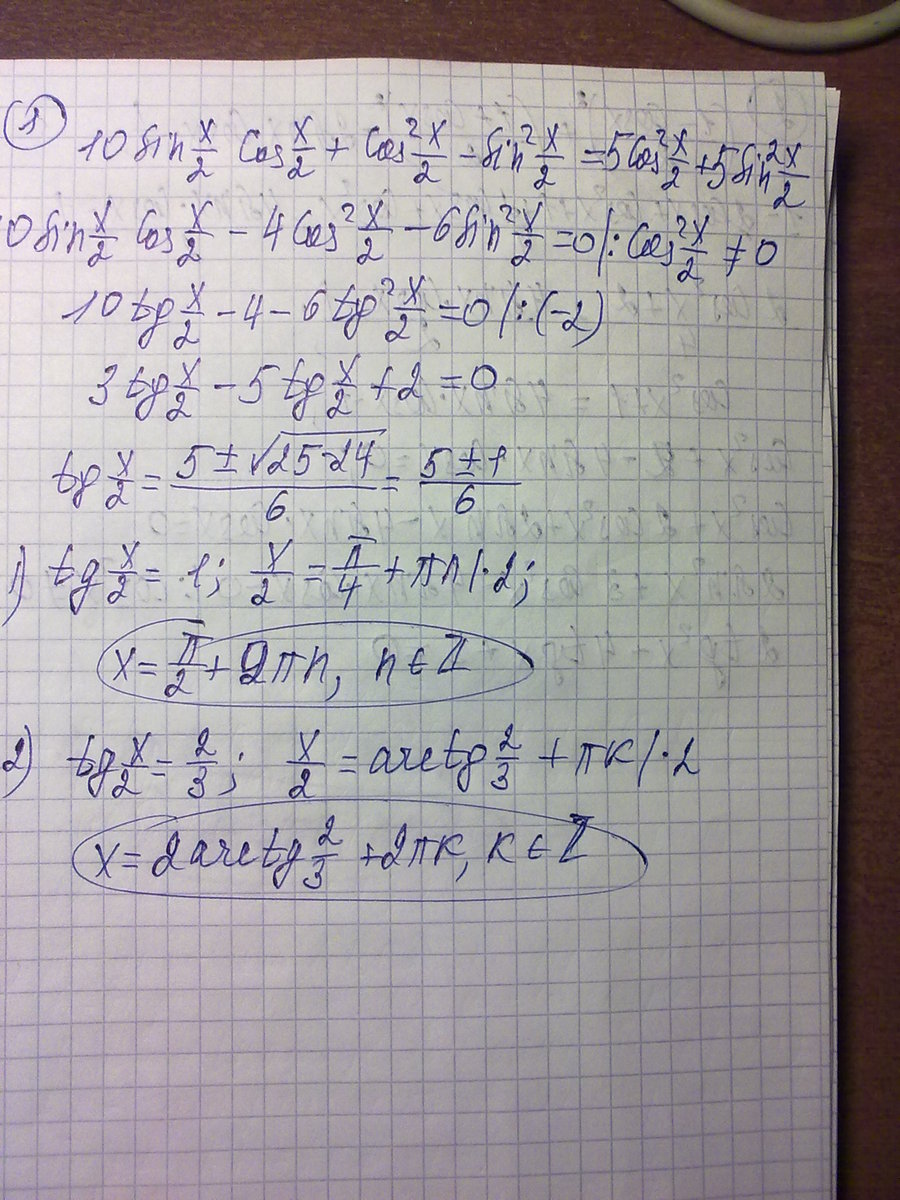 1
10 sin x/2 cos x/2 + cos² x/2 - sin² x/2 = 5 cos² x/2 + 5 sin² x/2
0 sin x/2 cos x/2 - 4 cos² x/2 - 6 sin² x/2 = 0 |: cos² x/2 ≠ 0
10 tg x/2 - 4 - 6 tg² x/2 = 0 |: (-2)
3 tg x/2 - 5 tg x/2 + 2 = 0
tg x/2 = (5 ± √(25-24))/6 = (5 ± 1)/6
1) tg x/2 = 1; x/2 = π/4 + πn |·2;
x = π/2 + 2πn, n ∈ Z
2) tg x/2 = 2/3; x/2 = arctg 2/3 + πk |·2
x = 2 arctg 2/3 + 2πk, k ∈ Z